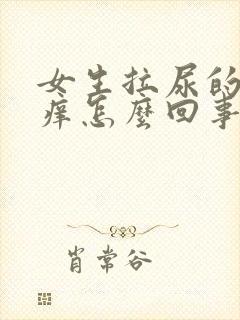 女生拉尿的
痒怎麼回事
肖常谷